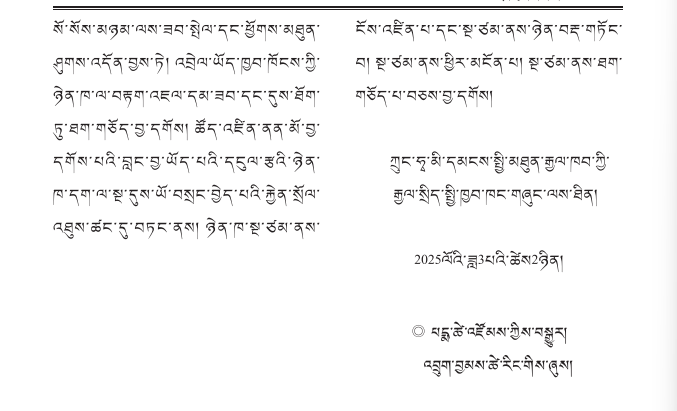 སོ་སོས་མཉམ་ལས་ཟབ་སྤེལ་དང་ཕྱོགས་མཐུན་
ཤུགས་འདོན་བྱས་ཏེ། འབྲེལ་ཡོད་ཁྱབ་ཁོངས་ཀྱི་
ཉེན་ཁ་ལ་བརྟག་འཇལ་དམ་ཟབ་དང་དུས་ཐོག་
ཏུ་ཐག་གཅོད་བྱ་དགོས། ཚོད་འཛིན་ནན་མོ་བྱ་
དགོས་པའི་བླང་བྱ་ཡོད་པའི་དངུལ་རྩའི་ཉེན་
ཁ་དག་ལ་སྔ་དུས་ཡོ་བསྲང་བྱེད་པའི་རྐྱེན་སྲོལ་
འཐུས་ཚང་དུ་བཏང་ནས། ཉེན་ཁ་སྔ་ཙམ་ནས་
ངོས་འཛིན་པ་དང་སྔ་ཙམ་ནས་ཉེན་བརྡ་གཏོང་
བ། སྔ་ཙམ་ནས་ཕྱིར་མངོན་པ། སྔ་ཙམ་ནས་ཐག་
གཅོད་པ་བཅས་བྱ་དགོས།
ཀྲུང་ཧྭ་མི་དམངས་སྤྱི་མཐུན་རྒྱལ་ཁབ་ཀྱི་
རྒྱལ་སྲིད་སྤྱི་ཁྱབ་ཁང་གཞུང་ལས་ཐིན།
2025ལོའི་ཟླ3པའི་ཚེས2ཉིན།
◎ པདྨ་ཚེ་འཛོམས་ཀྱིས་བསྒྱུར།
འབྲུག་བྱམས་ཚེ་རིང་གིས་ཞུས།